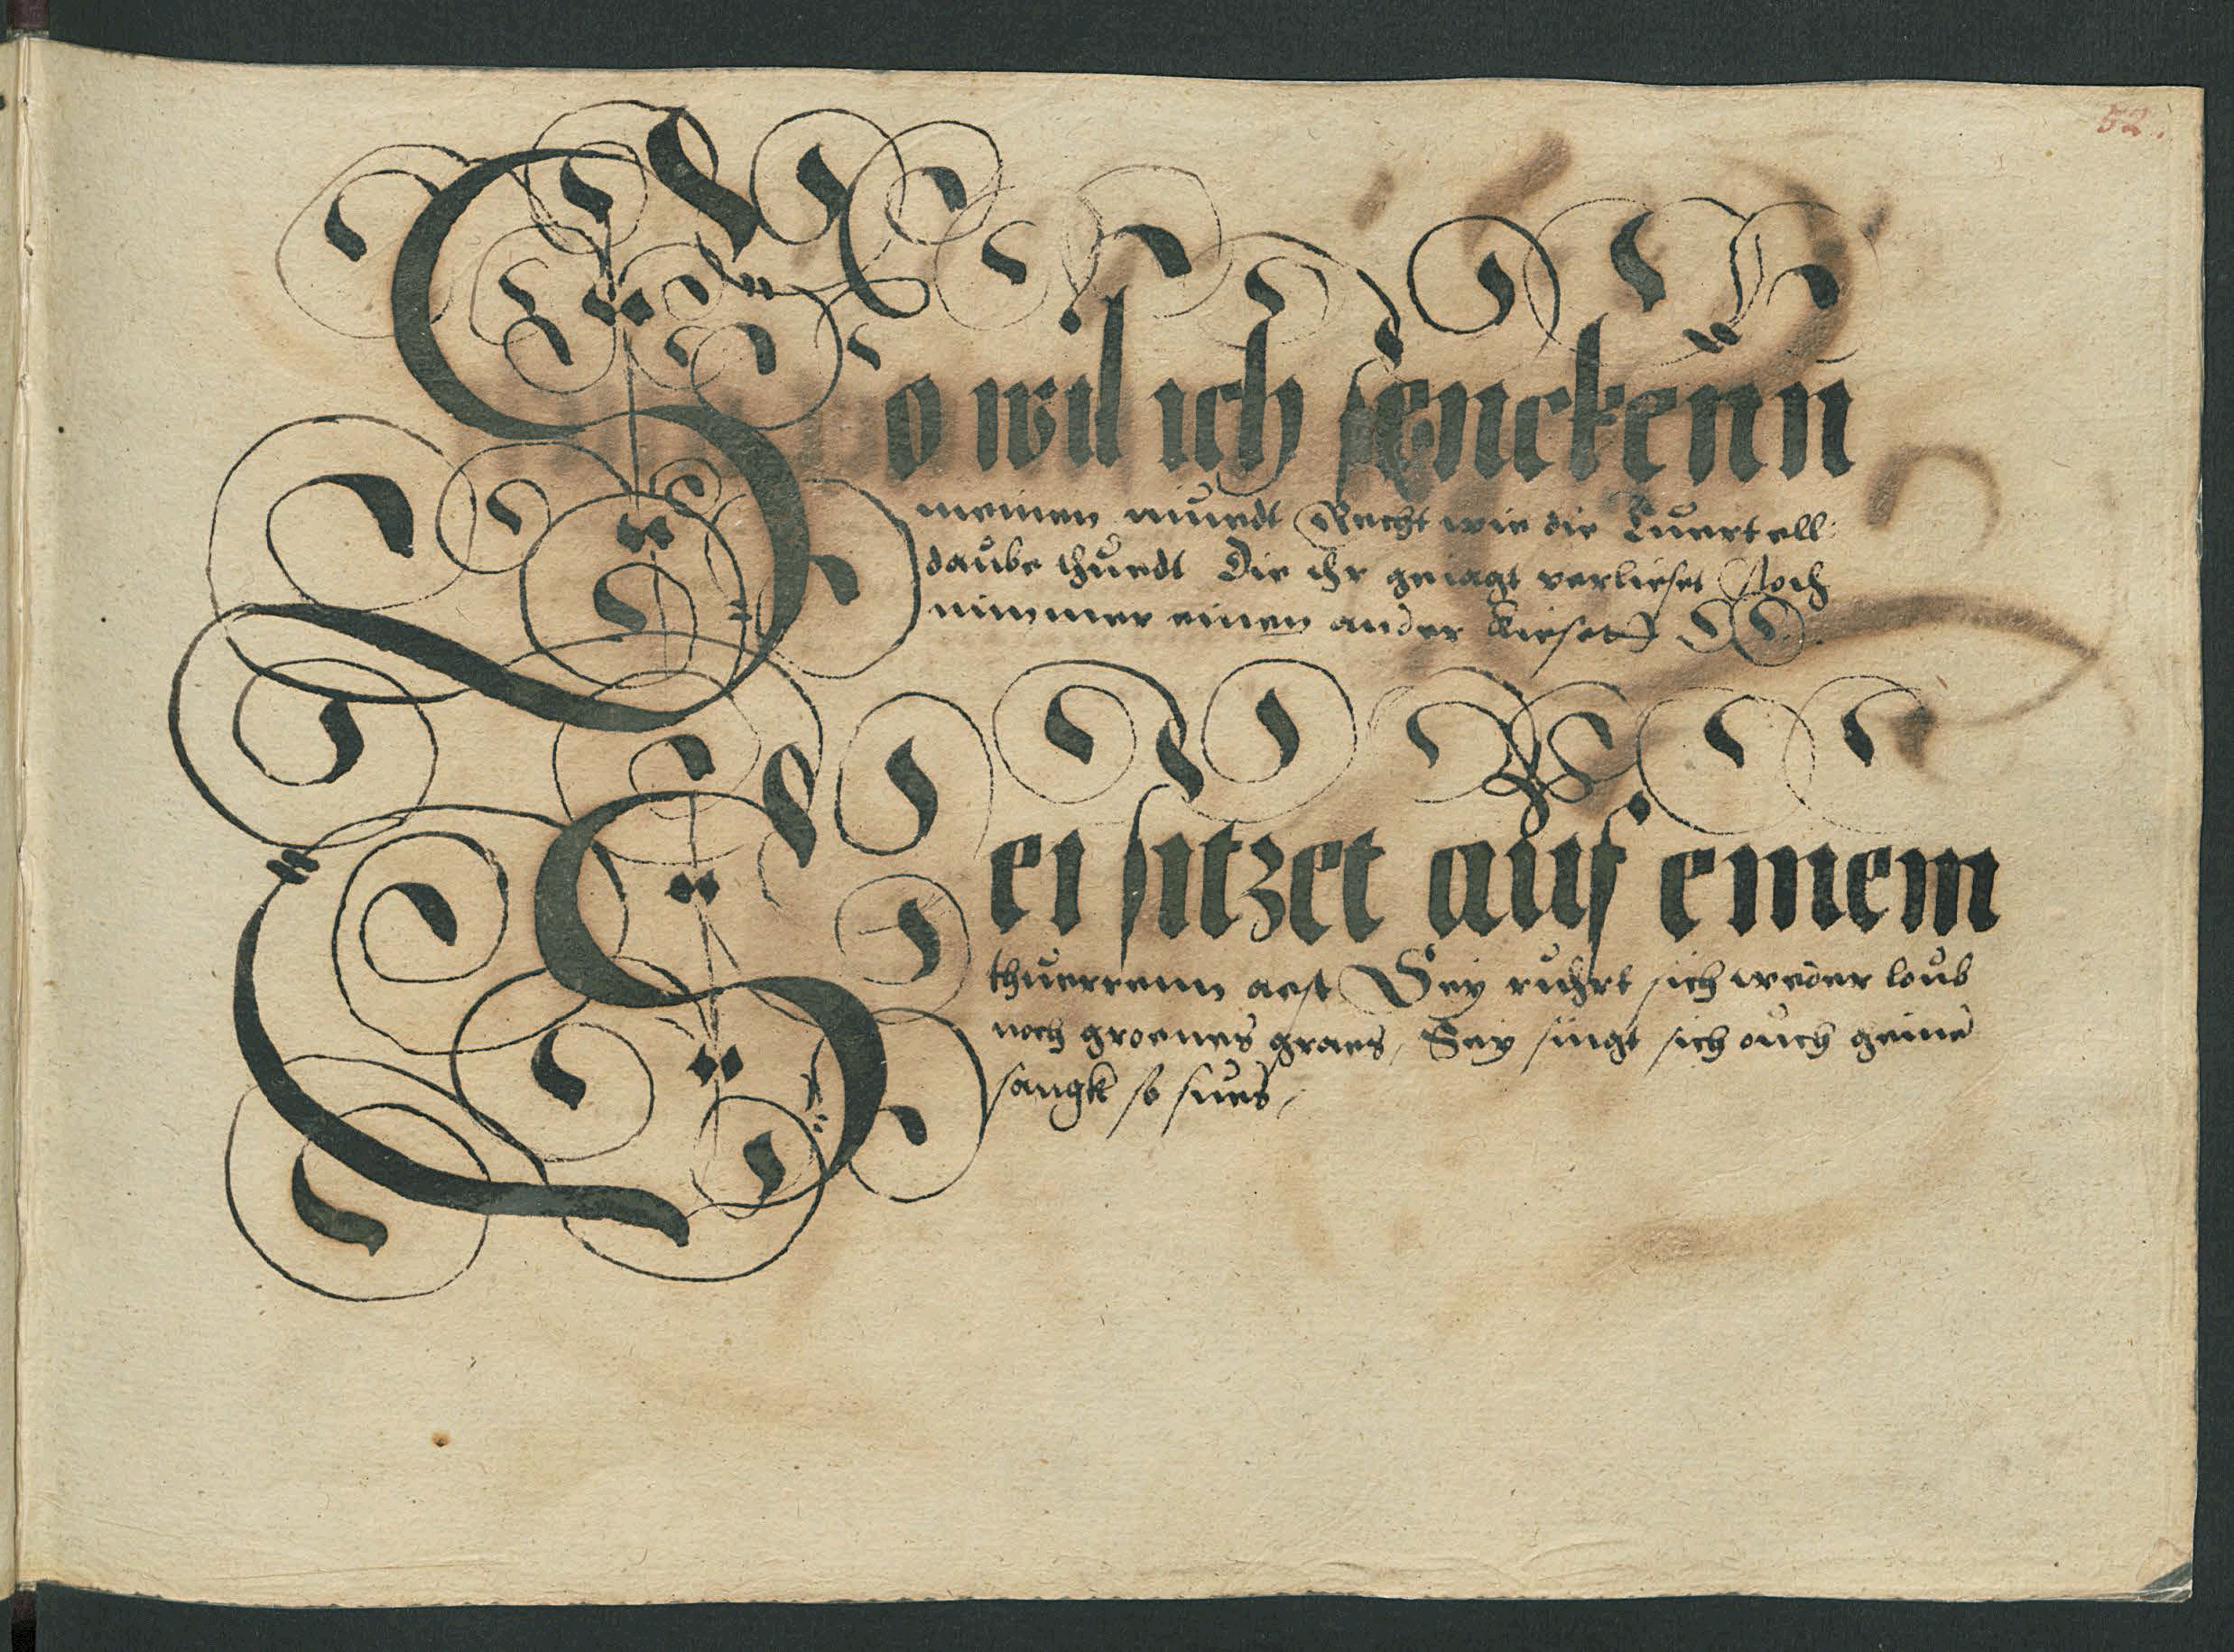 52.
So wil ich senckenn
meinen muedt Recht wie die Tuertell
daube thuedt Die ihr geiagt verlieset Noch
nimmer einen ander kieset
Sei sitzet auf einem
thuerrenn aest Sey ruhrt sich weder loub
noch groenes graes, Sey singt sich ouch geine
sangk so sues,